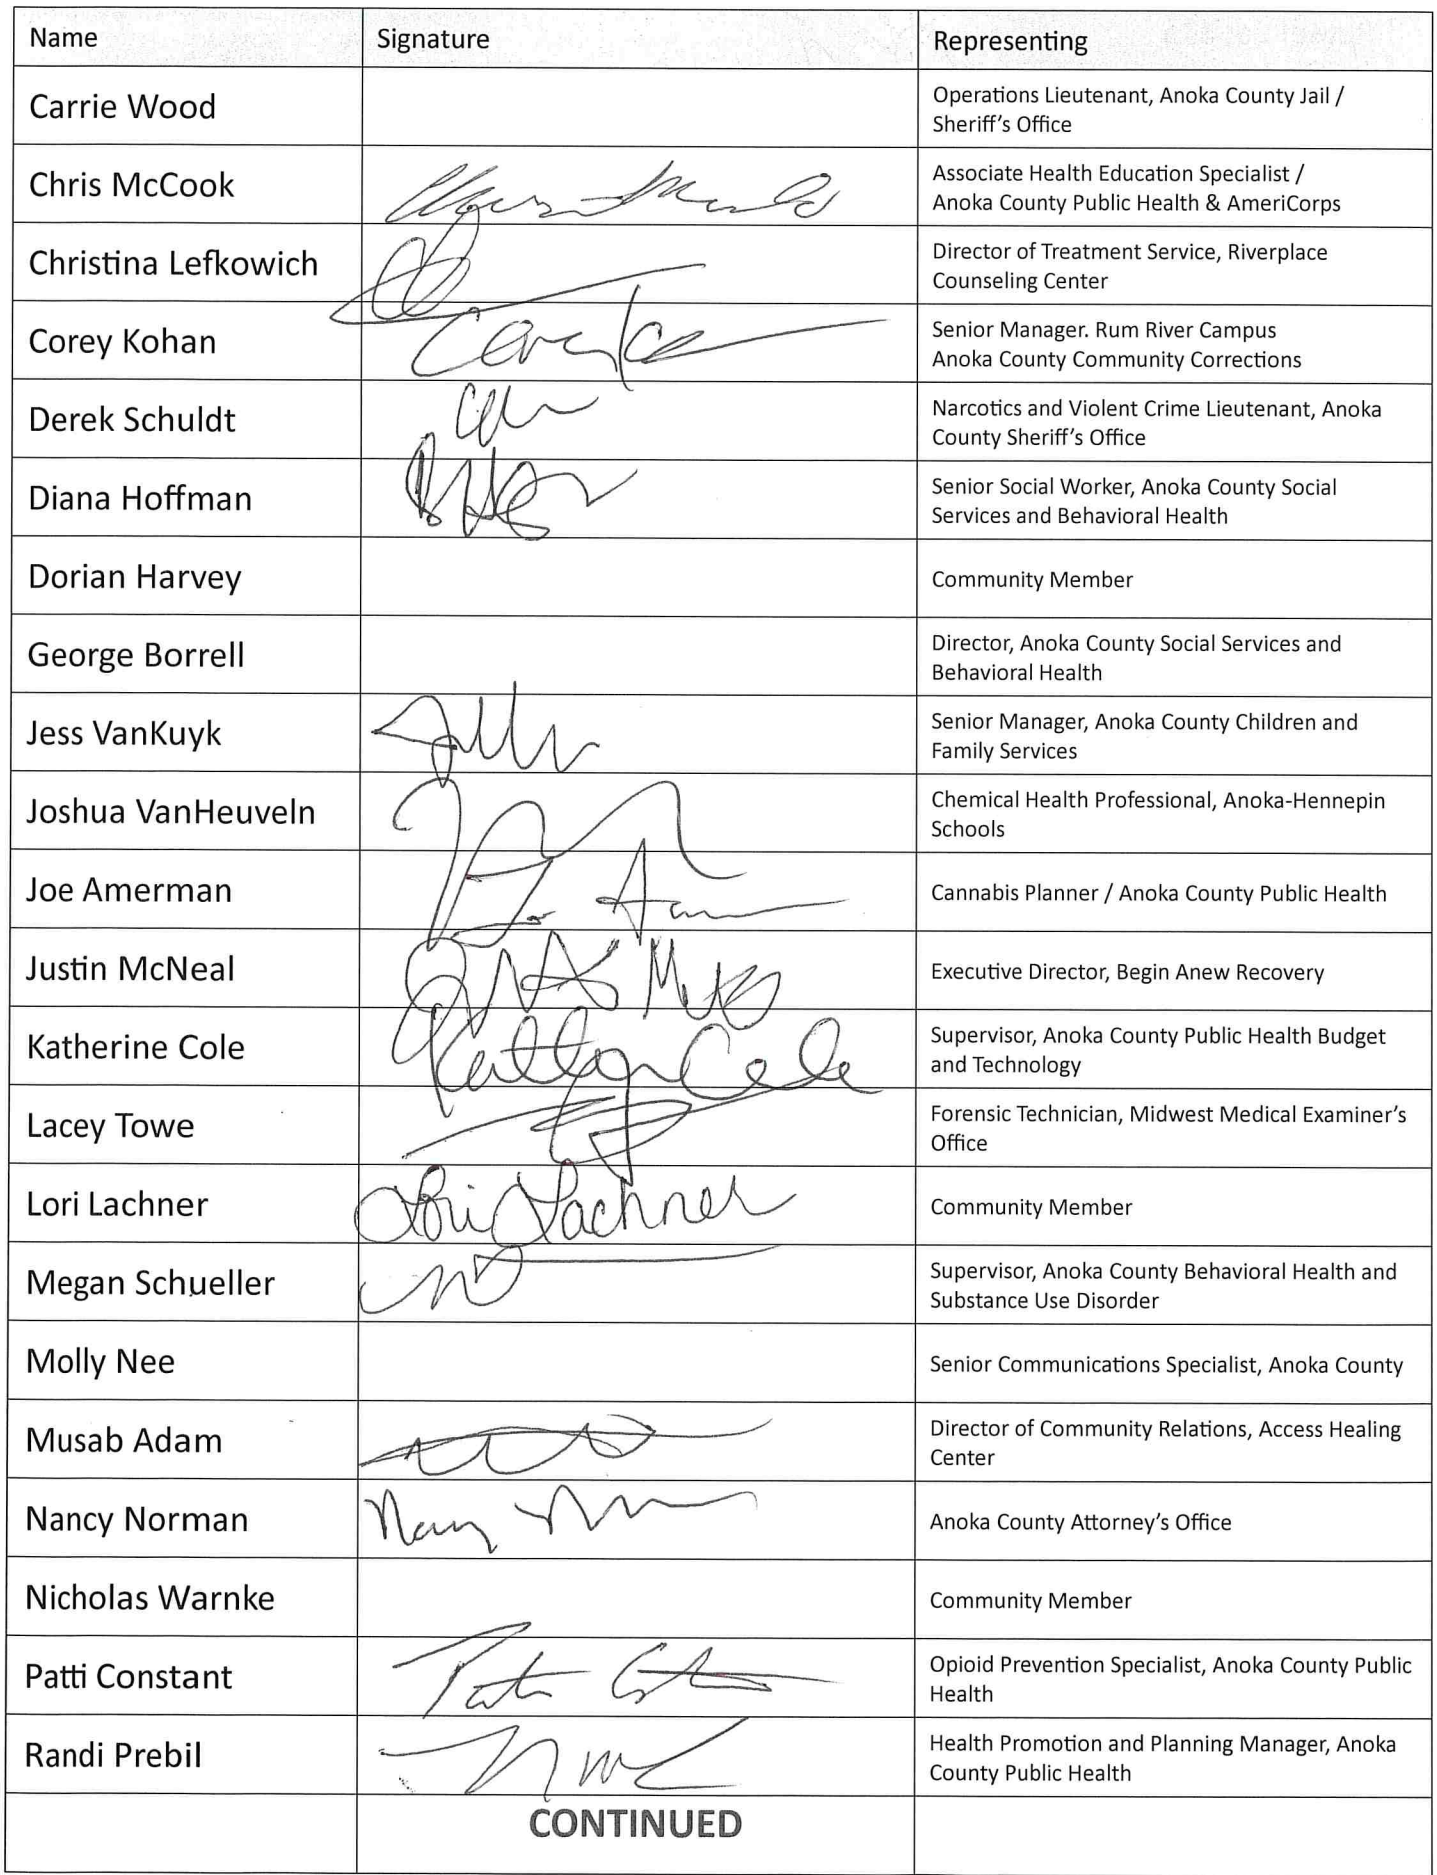 Name Signature Representing
Carrie Wood
Operations Lieutenant, Anoka County Jail /
Sheriff's Office
Chris McCook
Associate Health Education Specialist /
Anoka County Public Health & AmeriCorps
Christina Lefkowich
Director of Treatment Service, Riverplace
Counseling Center
Corey Kohan
Senior Manager. Rum River Campus
Anoka County Community Corrections
Derek Schuldt
Narcotics and Violent Crime Lieutenant, Anoka
County Sheriff's Office
Diana Hoffman
Senior Social Worker, Anoka County Social
Services and Behavioral Health
Dorian Harvey
Community Member
George Borrell
Director, Anoka County Social Services and
Behavioral Health
Jess VanKuyk
Senior Manager, Anoka County Children and
Family Services
Joshua VanHeuveln
Chemical Health Professional, Anoka-Hennepin
Schools
Joe Amerman
Cannabis Planner / Anoka County Public Health
Justin McNeal
Executive Director, Begin Anew Recovery
Katherine Cole
Cole
Supervisor, Anoka County Public Health Budget
and Technology
Lacey Towe
Forensic Technician, Midwest Medical Examiner's
Office
Lori Lachner
Lori Lachner
Community Member
Megan Schueller
Supervisor, Anoka County Behavioral Health and
Substance Use Disorder
Molly Nee
Senior Communications Specialist, Anoka County
Musab Adam
Director of Community Relations, Access Healing
Center
Nancy Norman
Anoka County Attorney's Office
Nicholas Warnke
Community Member
Patti Constant
Opioid Prevention Specialist, Anoka County Public
Health
Randi Prebil
Health Promotion and Planning Manager, Anoka
County Public Health
CONTINUED